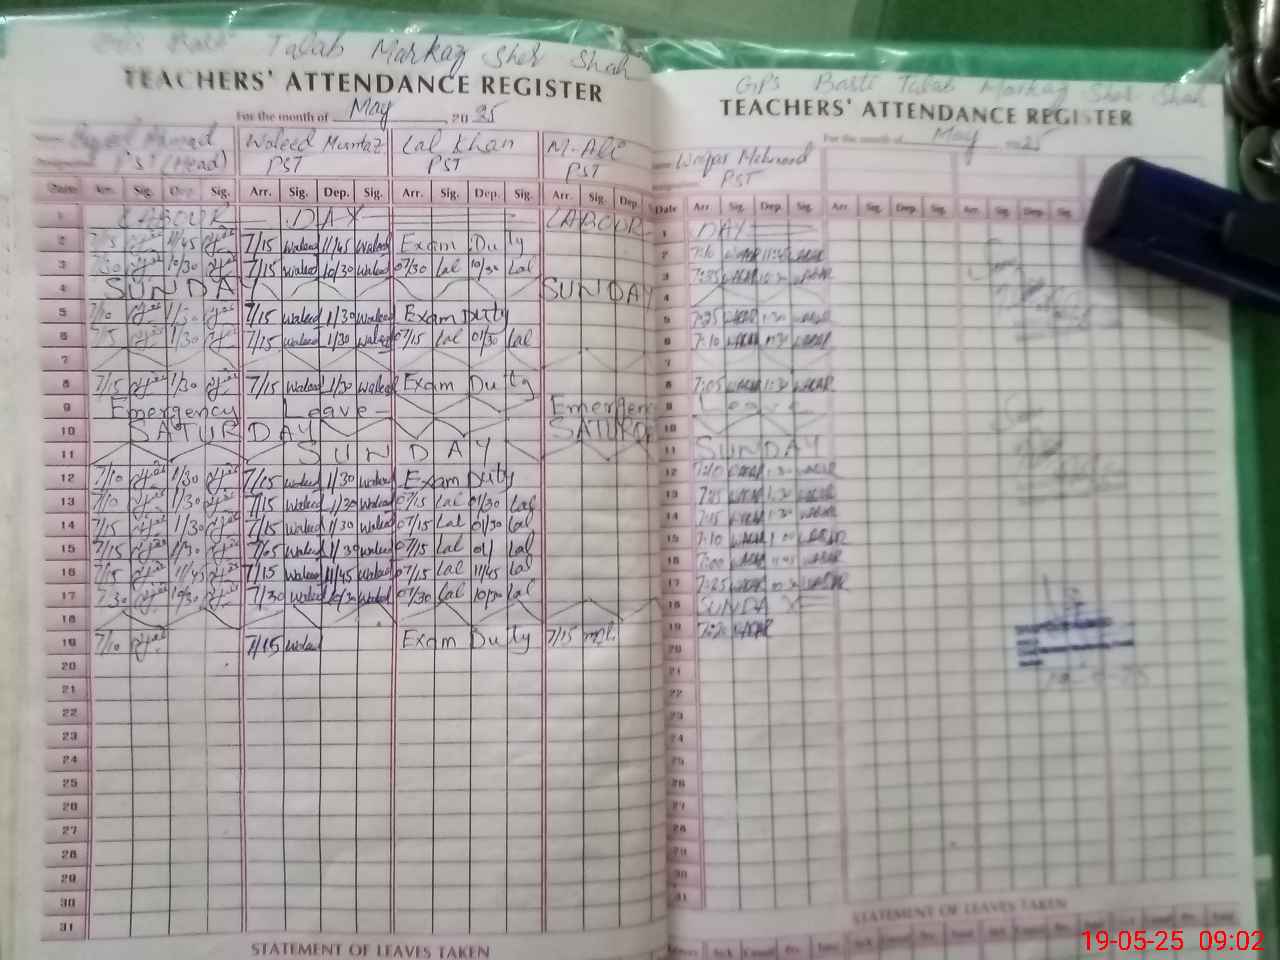 Basti Talab Markaz Sher Shah
TEACHERS' ATTENDANCE REGISTER
For the month of May 2025
Ahmad Waleed Mumtaz Lal Khan M-Ali
PST (Head) PST PST PST
Date Arr. Sig. Dep. Sig. Arr. Sig. Dep. Sig. Arr. Sig. Dep. Sig. Arr. Sig. Dep.
1 LABOUR DAY LABOUR
2 7/15 11/45 7/15 waleed 11/45 waleed Exam Duty
3 7/30 10/30 7/15 waleed 10/30 waleed 07/30 Lal 10/30 Lal
4 SUNDAY SUNDAY
5 7/10 1/30 7/15 waleed 1/30 waleed Exam Duty
6 7/15 1/30 7/15 waleed 1/30 waleed 07/15 Lal 01/30 Lal
7
8 7/15 1/30 7/15 waleed 1/30 waleed Exam Duty
9 Emergency Leave Emergen
10 SATURDAY SATURD
11 SUNDAY
12 7/10 1/30 7/15 waleed 1/30 waleed Exam Duty
13 7/10 1/30 7/15 waleed 1/30 waleed 07/15 Lal 01/30 Lal
14 7/15 1/30 7/15 waleed 1/30 waleed 07/15 Lal 01/30 Lal
15 7/15 1/30 7/05 waleed 1/30 waleed 07/15 Lal 01/ Lal
16 7/15 11/45 7/15 waleed 11/45 waleed 07/15 Lal 11/45 Lal
17 7/30 10/30 7/30 waleed 10/30 waleed 07/30 Lal 10/30 Lal
18
19 7/10 7/15 waleed Exam Duty 7/15
20
21
22
23
24
25
26
27
28
29
30
31
STATEMENT OF LEAVES TAKEN
GPS Basti Talab Markaz Sher Shah
TEACHERS' ATTENDANCE REGISTER
For the month of May 2025
Waqar Mehmood
PST
Date Arr. Sig. Dep. Sig. Arr. Sig. Dep. Sig. Arr. Sig. Dep. Sig.
1 DAY
2 7:10 WAQAR 11:45 WAQAR
3 7:35 WAQAR 10:30 WAQAR
4
5 7:25 WAQAR 1:30 WAQAR
6 7:10 WAQAR 1:30 WAQAR
7
8 7:05 WAQAR 1:30 WAQAR
9 Leave
10
11 SUNDAY
12 7:10 WAQAR 1:30 WAQAR
13 7:25 WAQAR 1:30 WAQAR
14 7:15 WAQAR 1:30 WAQAR
15 7:10 WAQAR 1:00 WAQAR
16 7:00 WAQAR 11:45 WAQAR
17 7:25 WAQAR 10:30 WAQAR
18 SUNDAY
19 7:20 WAQAR
20
21
22
23
24
25
26
27
28
29
30
31
STATEMENT OF LEAVES TAKEN
19-05-25 09:02